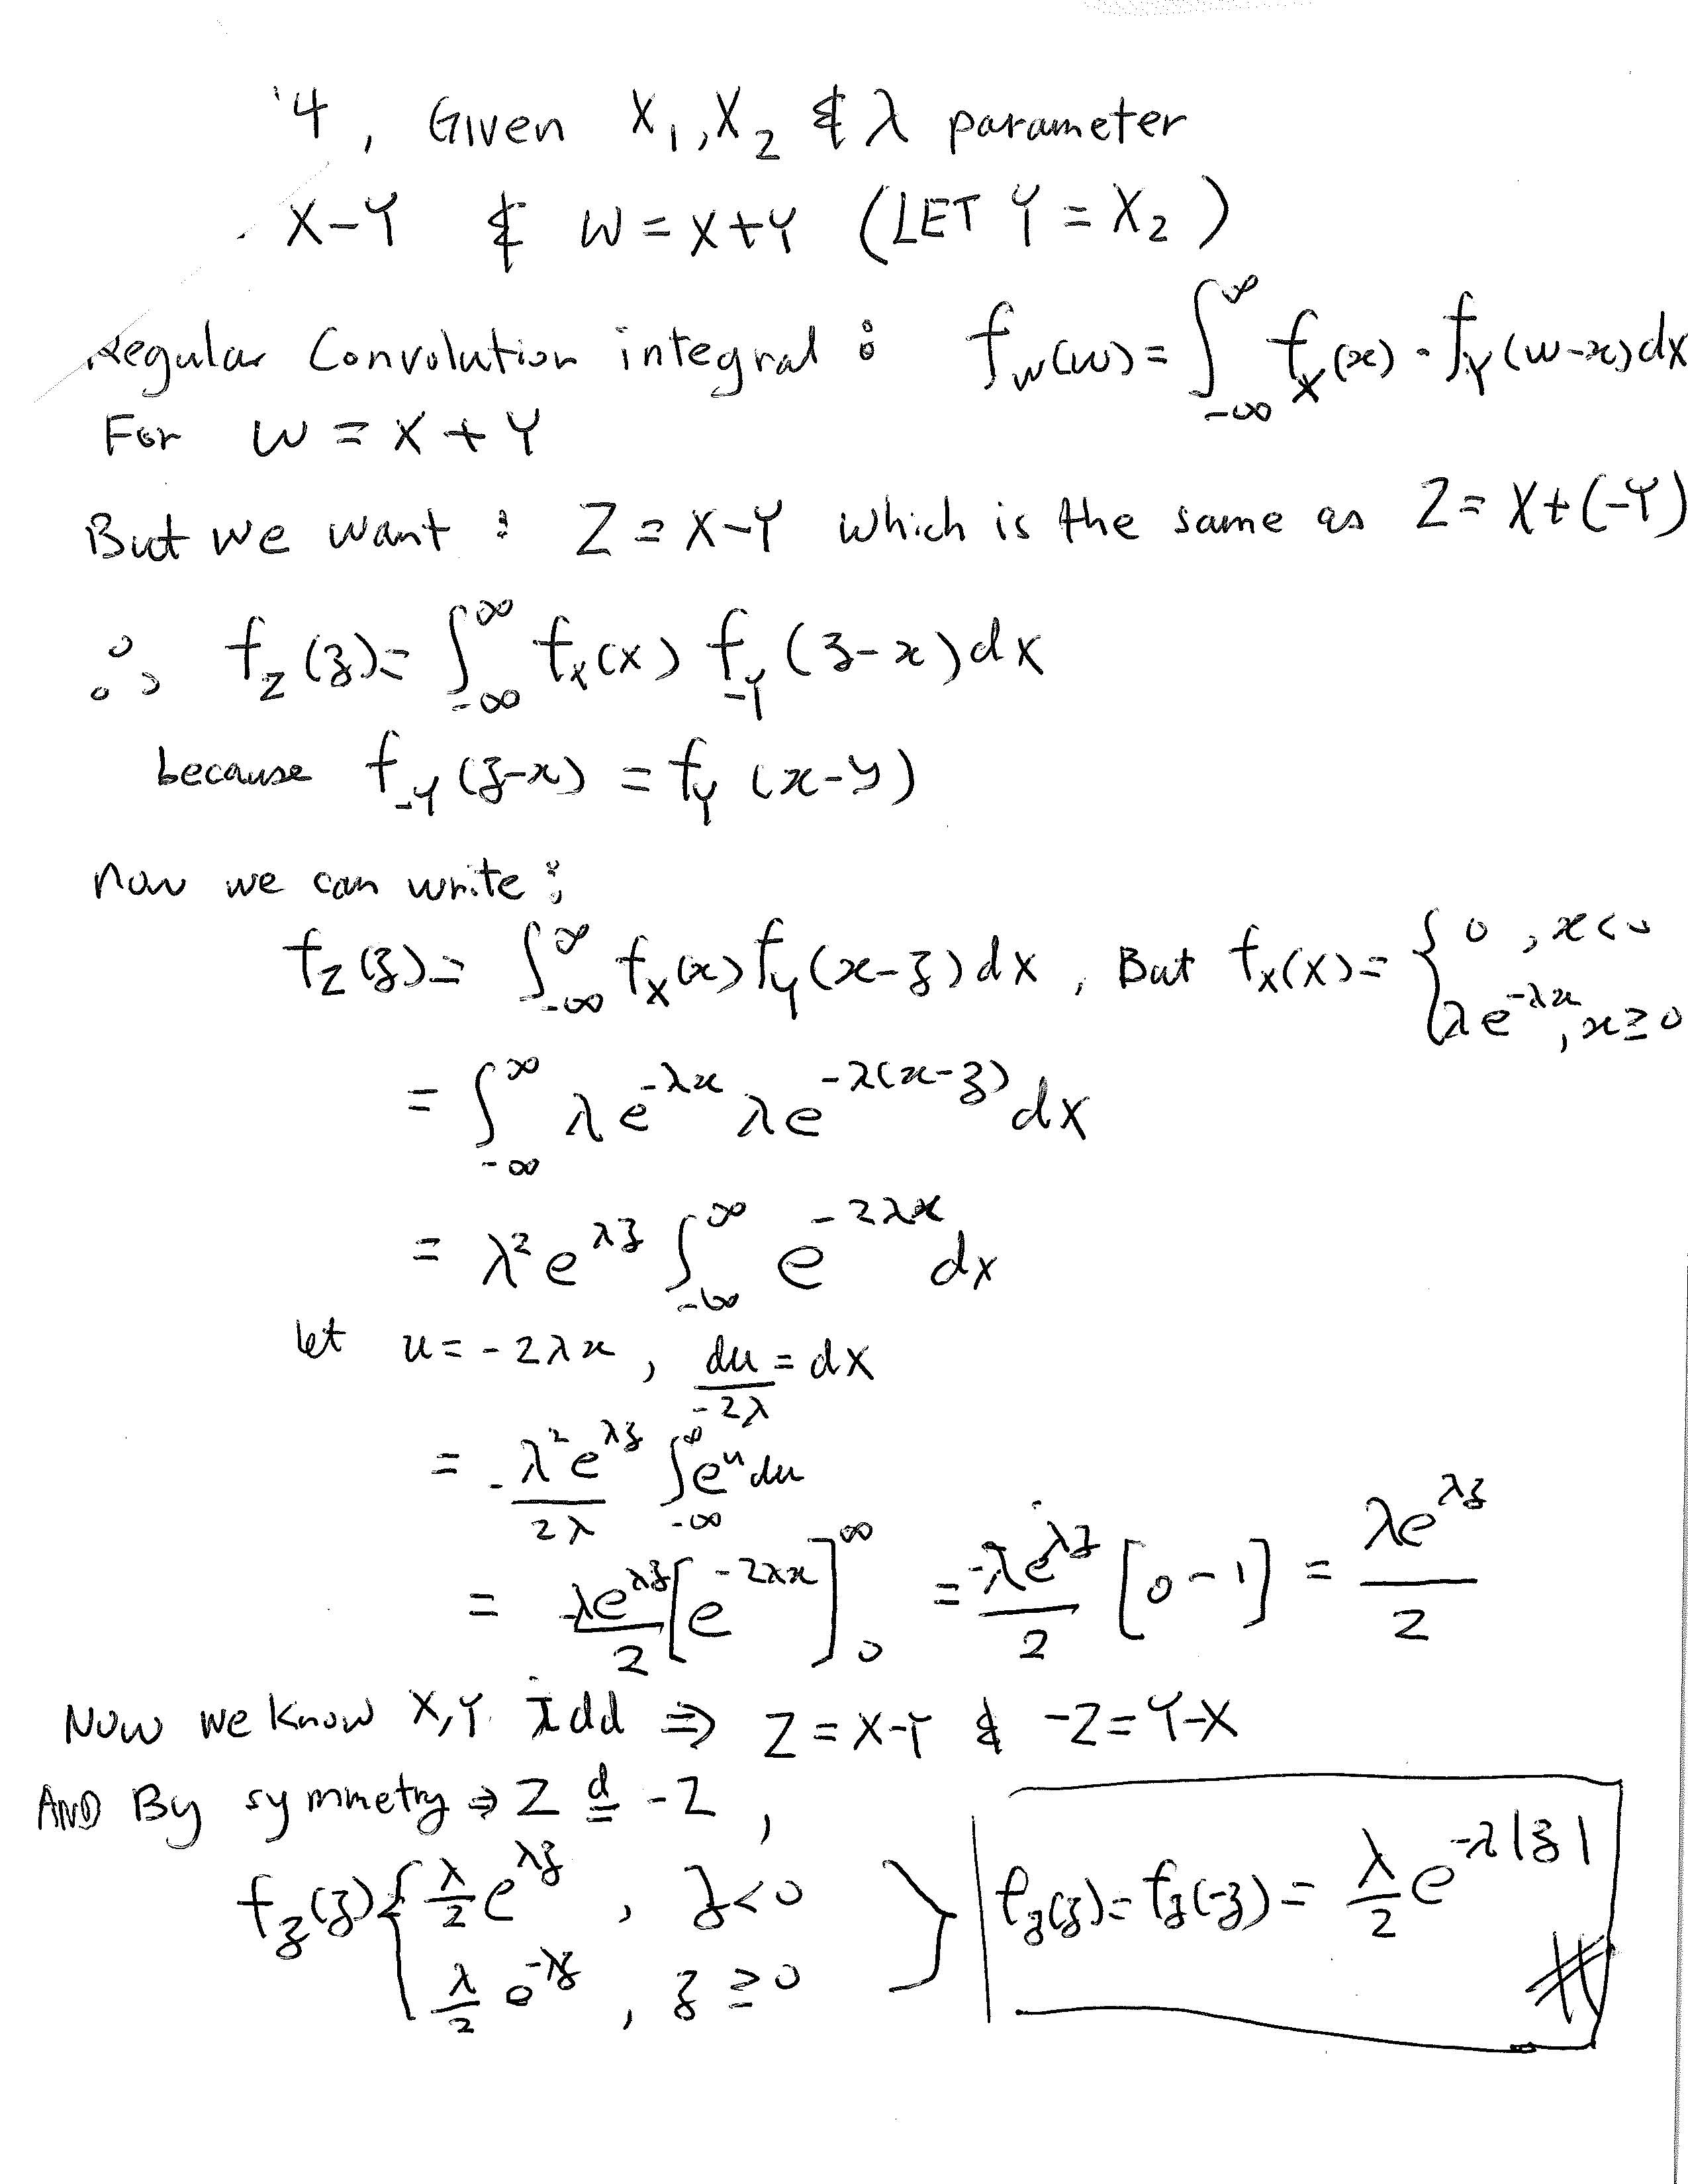 4, Given X₁, X₂ & λ parameter
X-Y & W = X+Y (LET Y = X₂)
Regular Convolution integral : f_W(w) = ∫_{-∞}^{∞} f_X(x) · f_Y(w-x)dx
For W = X + Y
But we want : Z = X-Y which is the same as Z = X+(-Y)
∴ f_Z(z) = ∫_{-∞}^{∞} f_X(x) f_{-Y}(z-x)dx
because f_{-Y}(z-x) = f_Y(x-y)
now we can write :
f_Z(z) = ∫_{-∞}^{∞} f_X(x) f_Y(x-z)dx , But f_X(x) = { 0 , x<0
λe^{-λx}, x≥0
= ∫_{-∞}^{∞} λe^{-λx} λe^{-λ(x-z)} dx
= λ²e^{λz} ∫_{-∞}^{∞} e^{-2λx} dx
let u = -2λx , du/-2λ = dx
= -λ²e^{λz}/2λ ∫_{-∞}^{∞} e^u du
= -λe^{λz}/2 [e^{-2λx}]_0^∞ = -λe^{λz}/2 [0-1] = λe^{λz}/2
Now we know X,Y idd ⇒ Z = X-Y & -Z = Y-X
AND By symmetry ⇒ Z =^d -Z ,
f_z(z) { λ/2 e^{λz} , z<0
λ/2 e^{-λz} , z ≥ 0
} f_z(z) = f_z(-z) = λ/2 e^{-λ|z|}